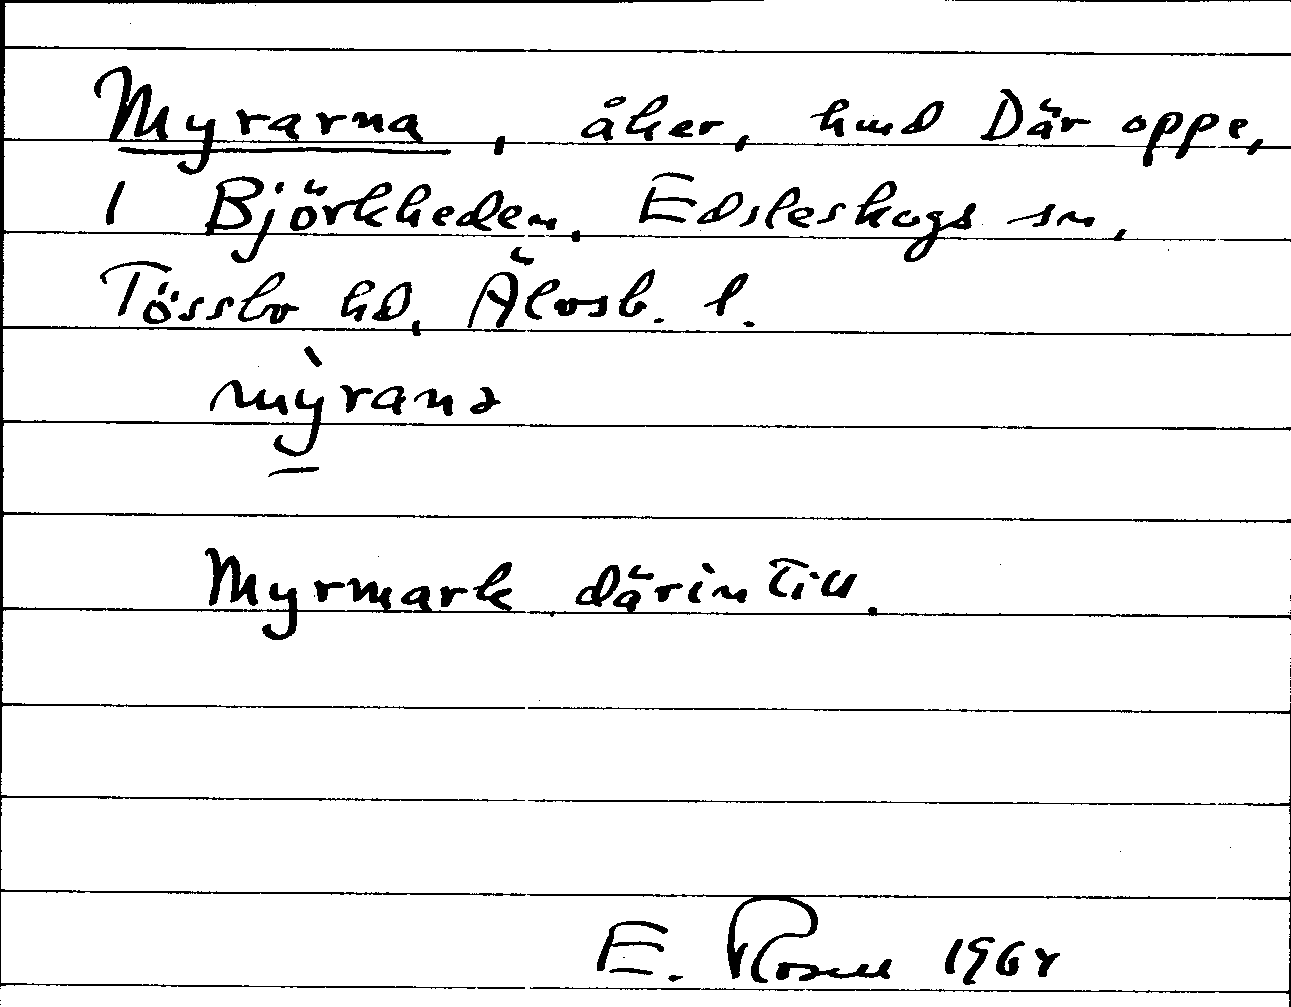 Myrarna, åker, hmd Där oppe,
1 Björkheden, Edsleskogs sn,
Tössbo hd, Älvsb. l.
mỳranə
Myrmark därintill.
E. Rosell